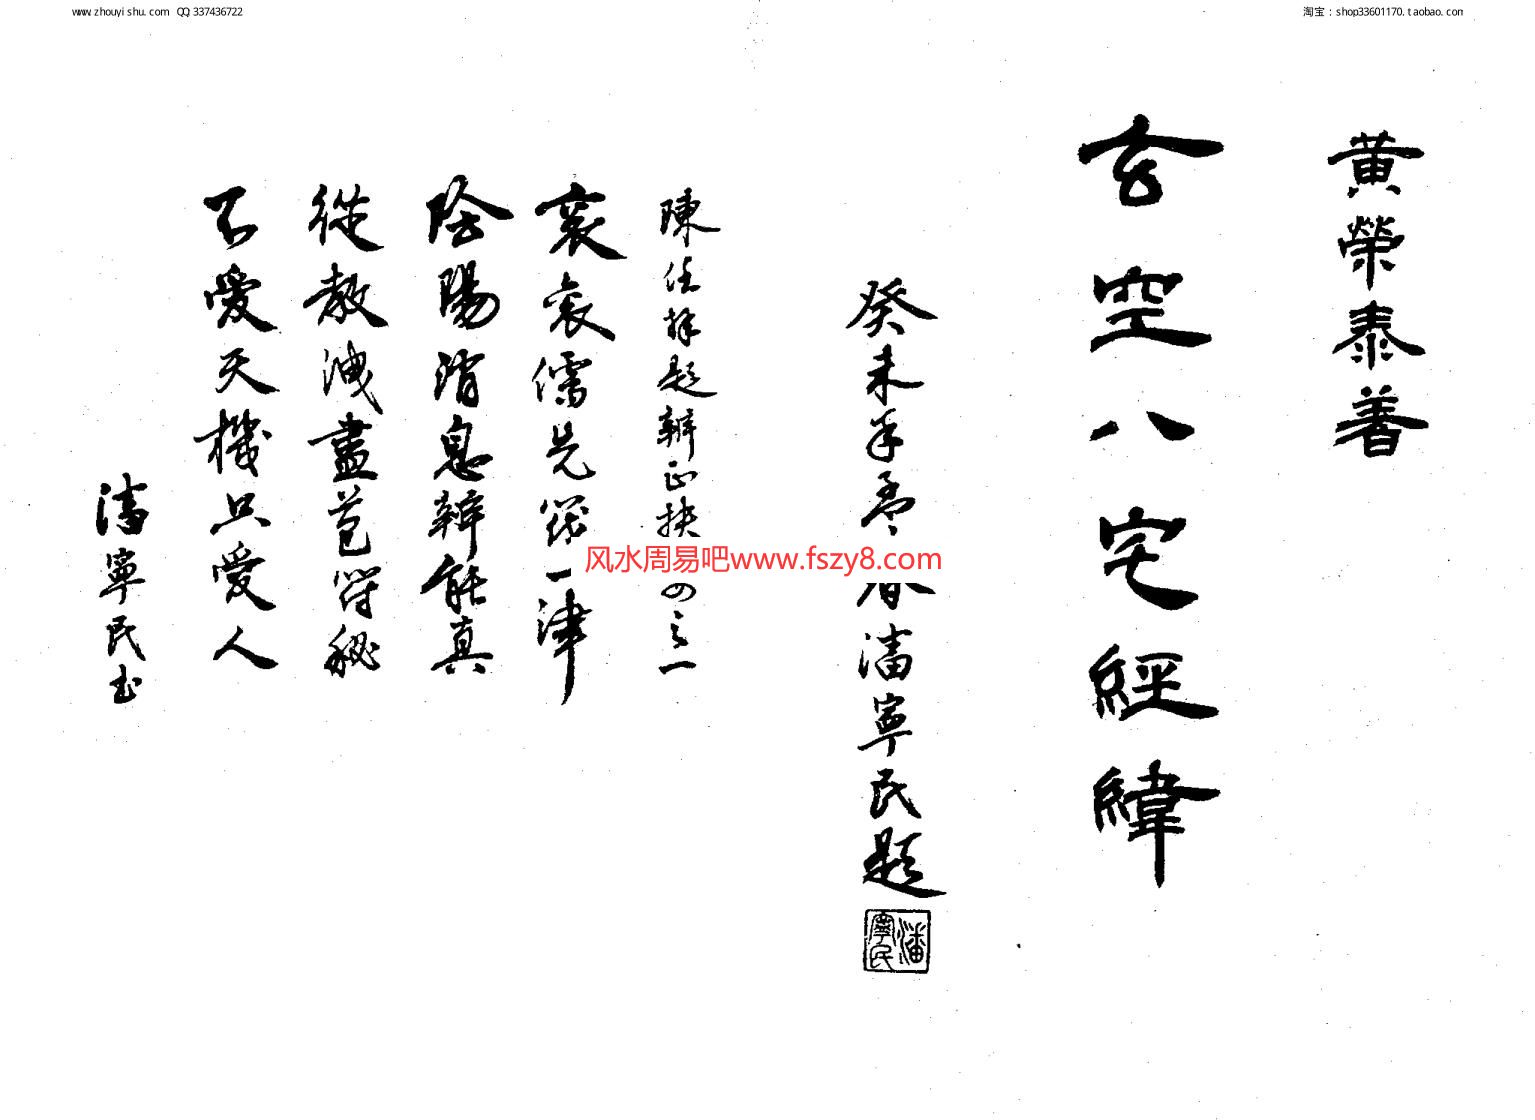 www.zhouyishu.com QQ:337436722
淘宝：shop33601170.taobao.com
黃榮泰著
玄空八宅經緯
癸未年孟春潘寧民題
潘寧民
陳 題辯正抉 四之一
袞袞儒 一津
陰陽消息辨能真
從教洩盡苞符秘
不愛天機只愛人
潘寧民書
风水周易吧www.fszy8.com